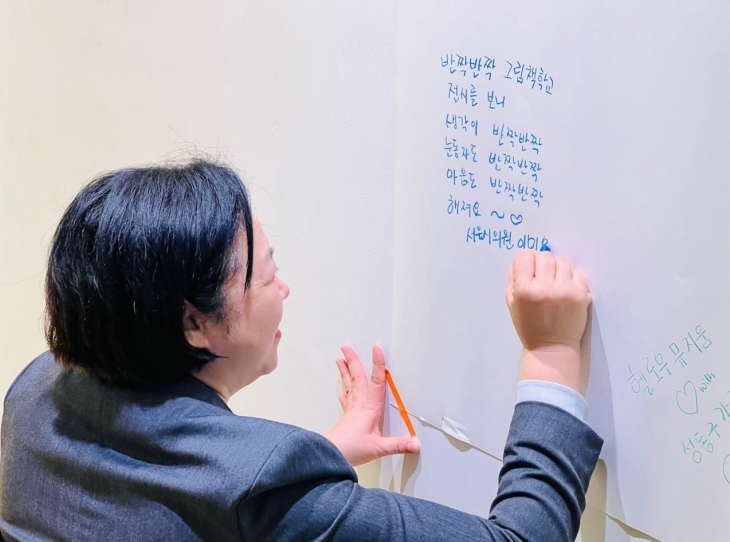 반짝반짝 그림책학교
전시를 보니
생각이 반짝반짝
눈동자도 반짝반짝
마음도 반짝반짝
해져요 ~ ♡
서울시의원 이미
헬로우뮤지움
♡ with
성동구